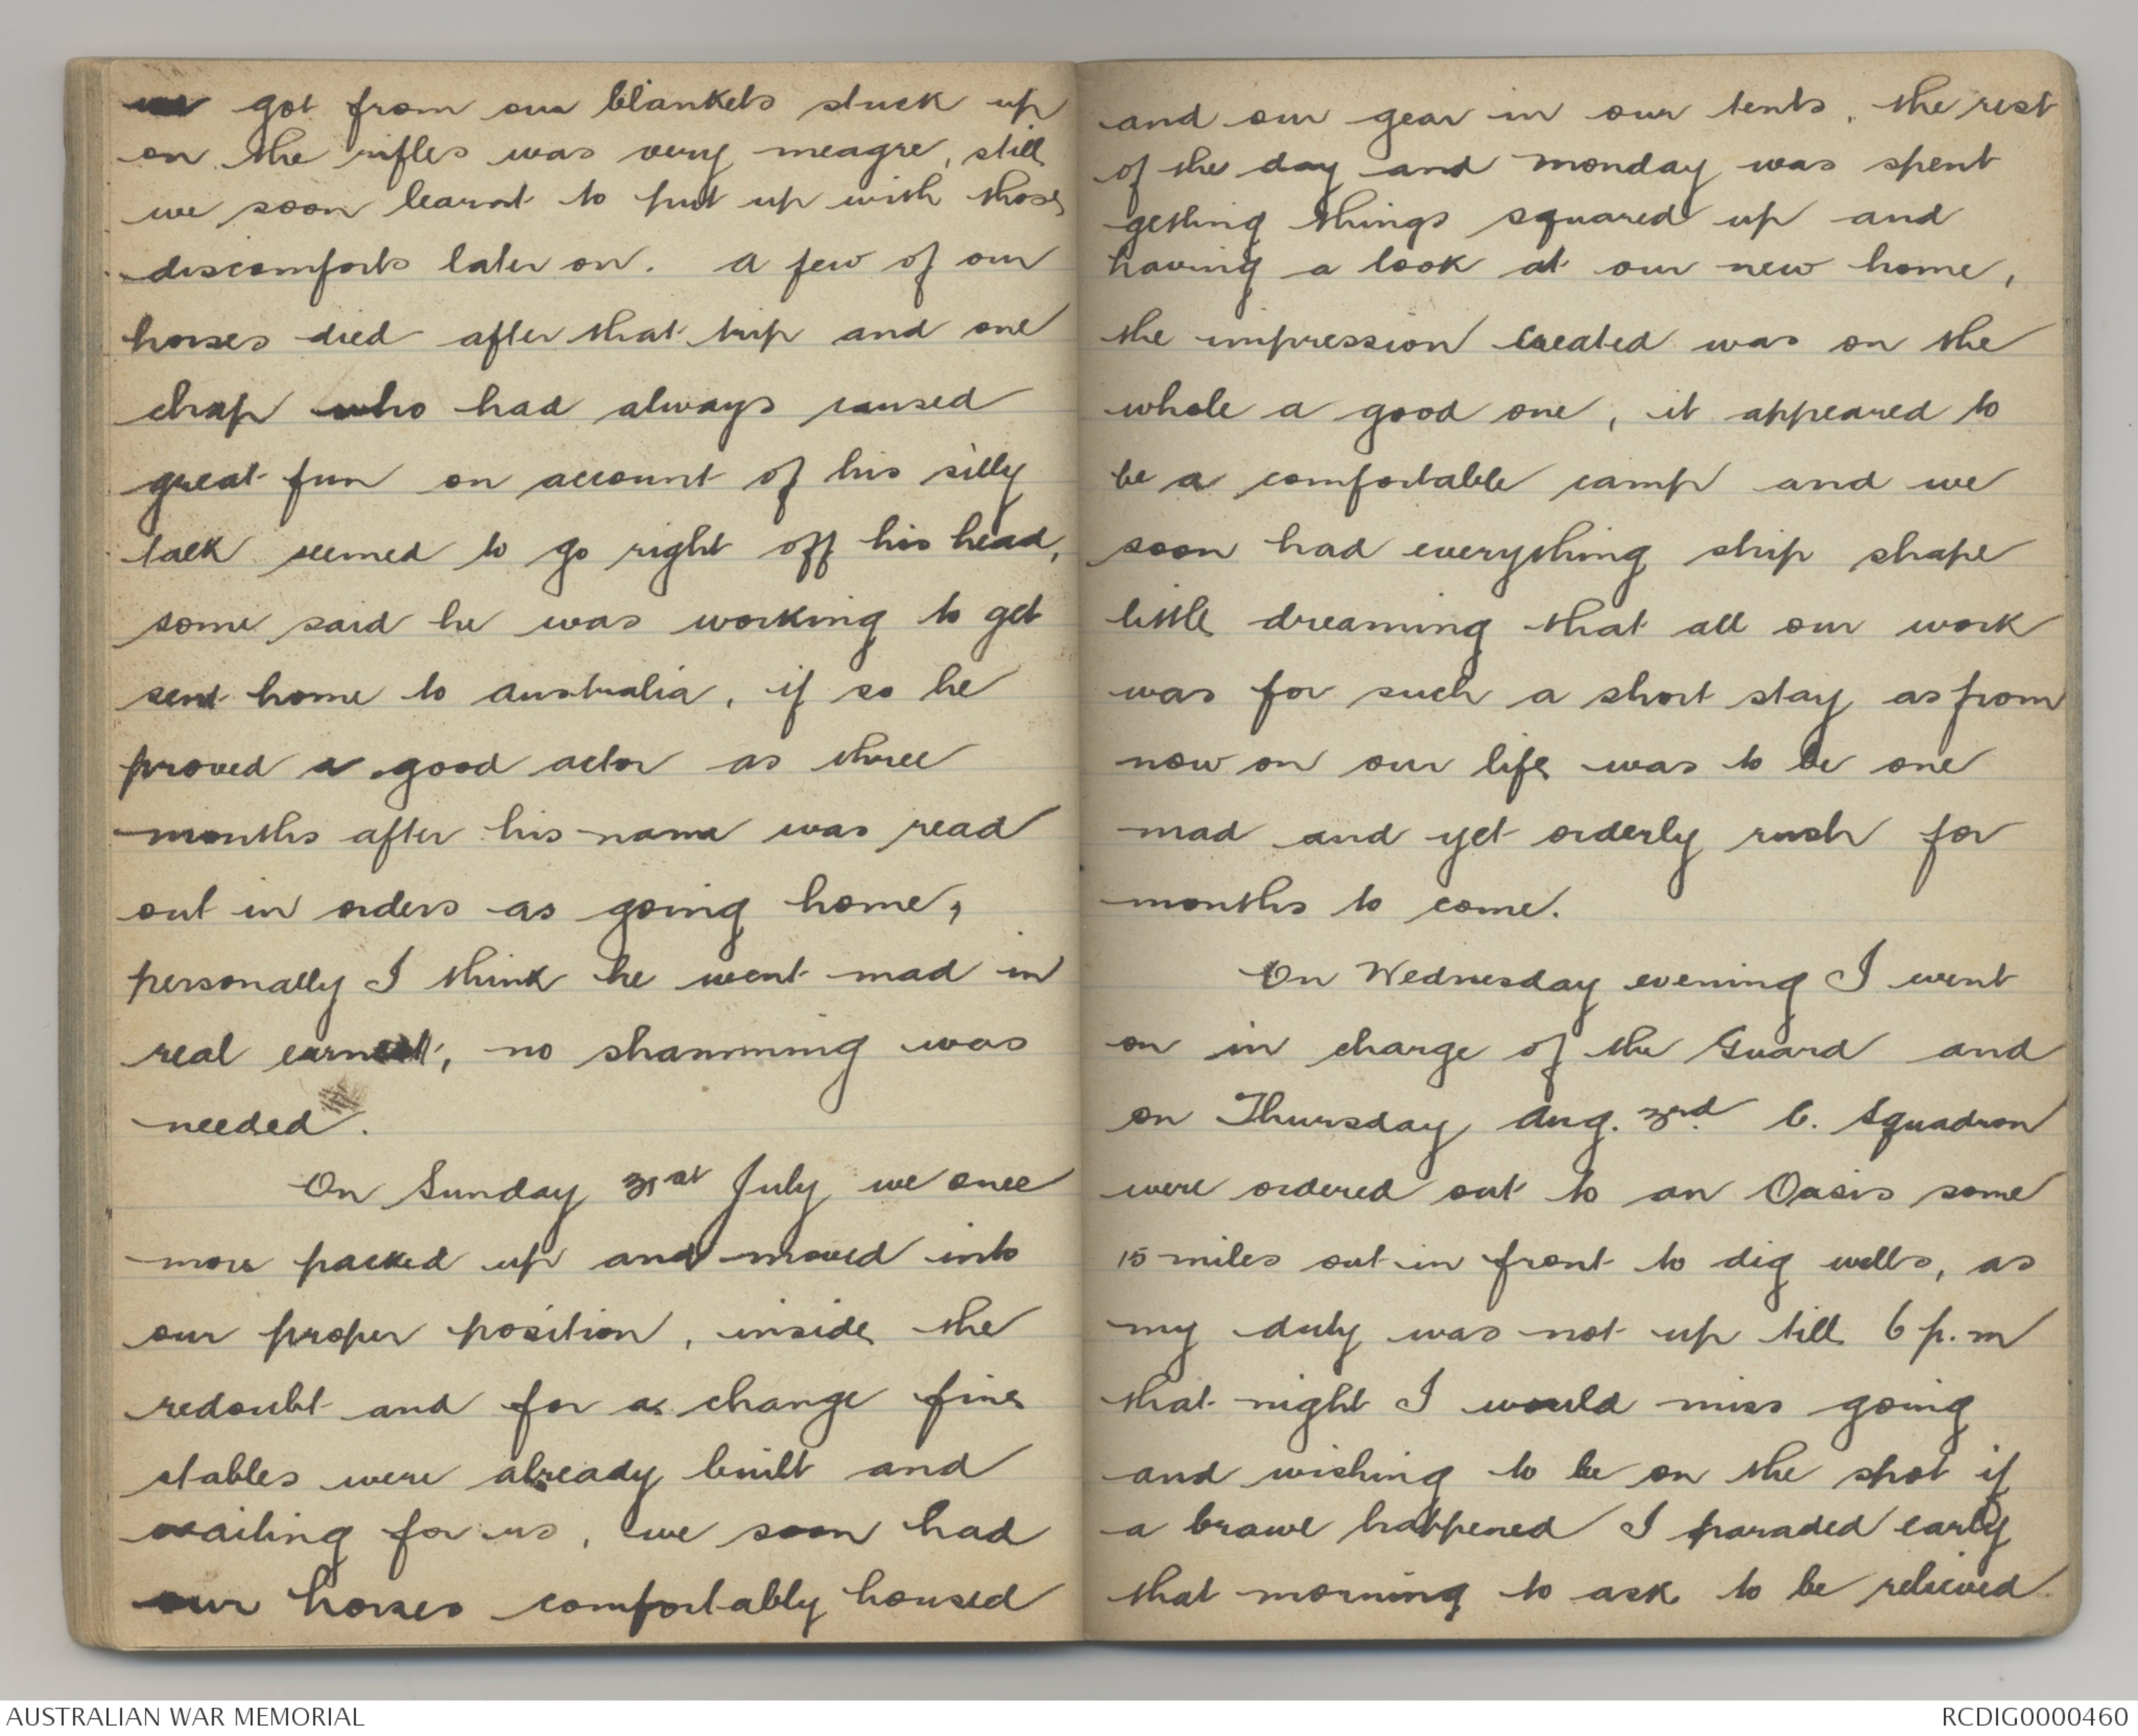 we got from our blankets stuck up
on the rifles was very meagre, still
we soon learnt to put up with those
discomforts later on. A few of our
horses died after that trip and one
chap who had always caused
great fun on account of his silly
talk seemed to go right off his head,
some said he was working to get
sent home to Australia, if so he
proved a good actor as three
months after his name was read
out in orders as going home,
personally I think he went mad in
real earnest, no shamming was
needed.
On Sunday 31st July we once
more packed up and moved into
our proper position, inside the
redoubt and for a change fine
stables were already built and
waiting for us, we soon had
our horses comfortably housed
and our gear in our tents, the rest
of the day and Monday was spent
getting things squared up and
having a look at our new home,
the impression created was on the
whole a good one, it appeared to
be a comfortable camp and we
soon had everything ship shape
little dreaming that all our work
was for such a short stay as from
now on our life was to be one
mad and yet orderly rush for
months to come.
On Wednesday evening I went
on in charge of the Guard and
on Thursday Aug. 3rd C. Squadron
were ordered out to an Oasis some
15 miles out in front to dig wells, as
my duty was not up till 6 p.m
that night I would miss going
and wishing to be on the spot if
a brawl happened I paraded early
that morning to ask to be relieved
AUSTRALIAN WAR MEMORIAL
RCDIG0000460